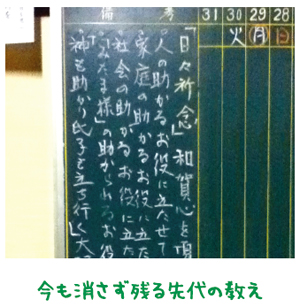 備考
31 30 29 28
火 月 日
「日々祈念」和賀心を
人の助かるお役に立たせて
家庭の助かるお役に立た
社会の助かるお役に立た
"みたま様"の助かられるお役
神も助かり氏子も立ち行く
今も消さず残る先代の教え